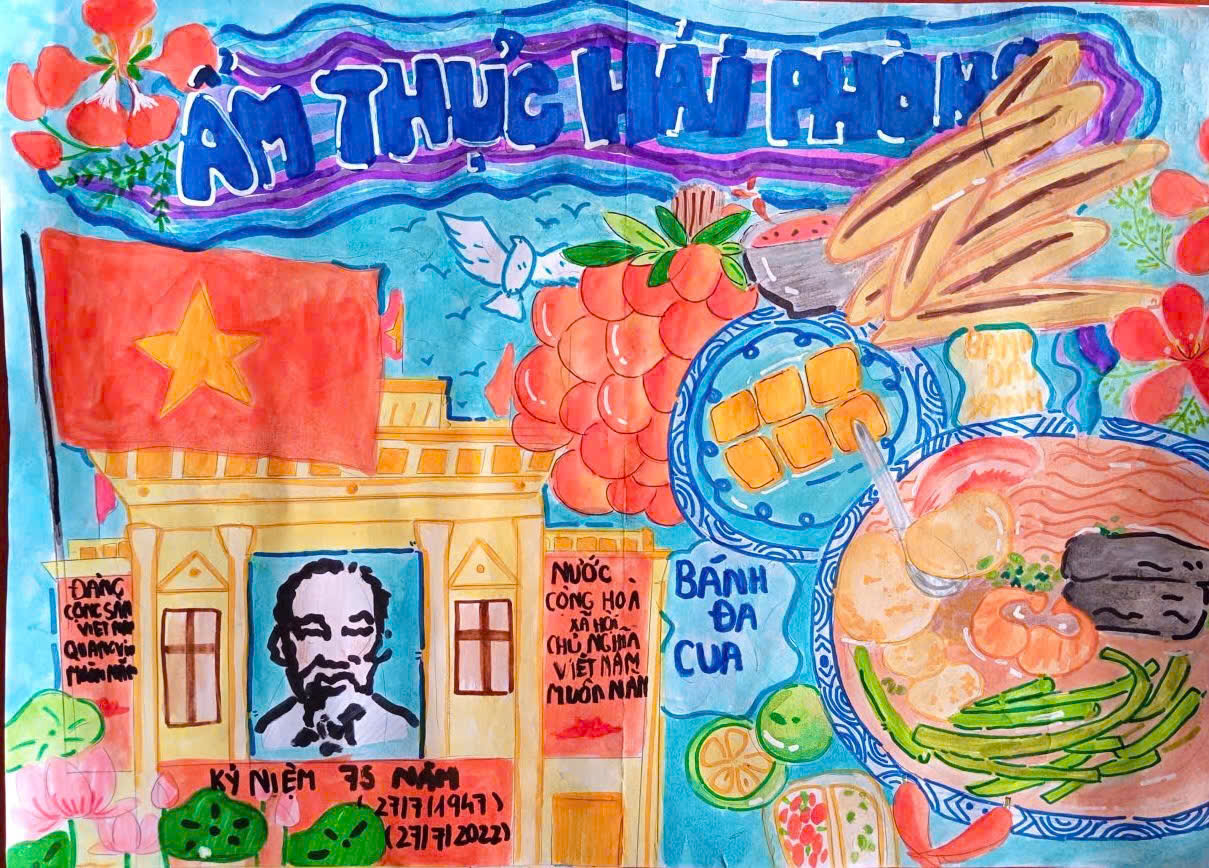 ẨM THỰC HẢI PHÒNG
BÁNH
ĐA
CUA
ĐẢNG
CỘNG SẢN
VIỆT NAM
QUANG VINH
MUÔN NĂM
NƯỚC
CÔNG HOÀ
XÃ HỘI
CHỦ NGHĨA
VIỆT NAM
MUÔN NĂM
KỶ NIỆM 75 NĂM
(27/7/1947)
(27/7/2022)